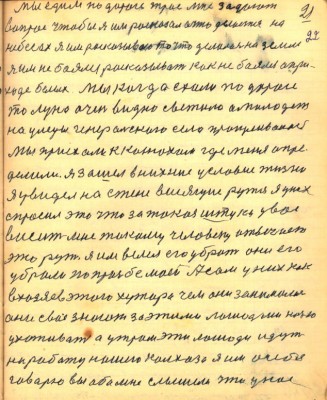 21
Мы едим по дороге трое мне задают
вопрос чтобы я им росказал што делается на
небесах я им росказываю то что делаю на земли
24
я им не боялся росказывать как не боялся о при
ходе белых. Мы когда ехали по дороге
то луна очен видно светила а молодеж
на улецы генеральского село
Мы приехали к казакам где меня опре
делили. я зашел в нихние условие жизни
я увидел на стене висящие ружя я у них
спросил это что за такая штука у вас
висит мне такому человеку отвечают
это руж. я им велел его убрать они его
убрали по прозбе моей А сам у них как
хозяев этого хутора чем они занималис
они свое знают за этими лошадьми ночю
ухаживают а утром эти лошади идут
на работу нашего колхоза я им особо
говорю вы обо мне слышали что у нас